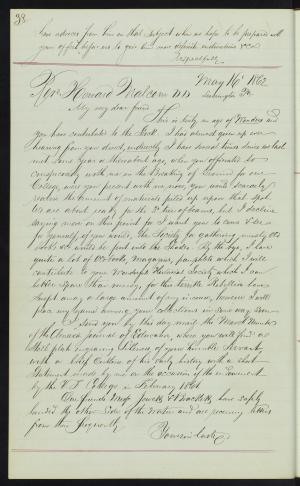 38
have advices from him on that subject when we hope to be prepared with
your effort before us to give him more definite instructions &c &c
Respectfully
May 16th 1862
Rev. Howard Malcom D.D.
My very dear friend
This is truly an age of Wonders and
you have contributed to the Stock. I has almost given up ever
hearing from you direct, indirectly I have several times since we last
met some year or thereabout ago, when you
conspicuously with me on the breaking of Ground for our
College, were you present with me now, you would scarcely
realize the amount of materials piled up upon that spot.
We are about ready for the 2d tier of beams, but I decline
saying more on this point for I want you to come & see
for yourself if you won't, the Society for gathering
books &c would be put into the Shades. By the bye, I have
quite a lot of Books, Magazines, pamphlets which I will
contribute to your Wonderful Historical Society which I can
better spare than money, for this terrible Rebellion has
swept away a large amount of my income, however I will
place my name among your collections in some way soon
I send you by this day mail the March Number
of the American Journal of Education where you will find a
Steel plate Engraven Likeness of your humble Servant,
with a brief Outline of his early history with a short
Statement made by me on the occasion of the endowment
by the V. F. College in February 1861
Our friends Messrs Jewett & have safely
landed the other side of the Water and are receiving letters
from them frequently
Yours in haste